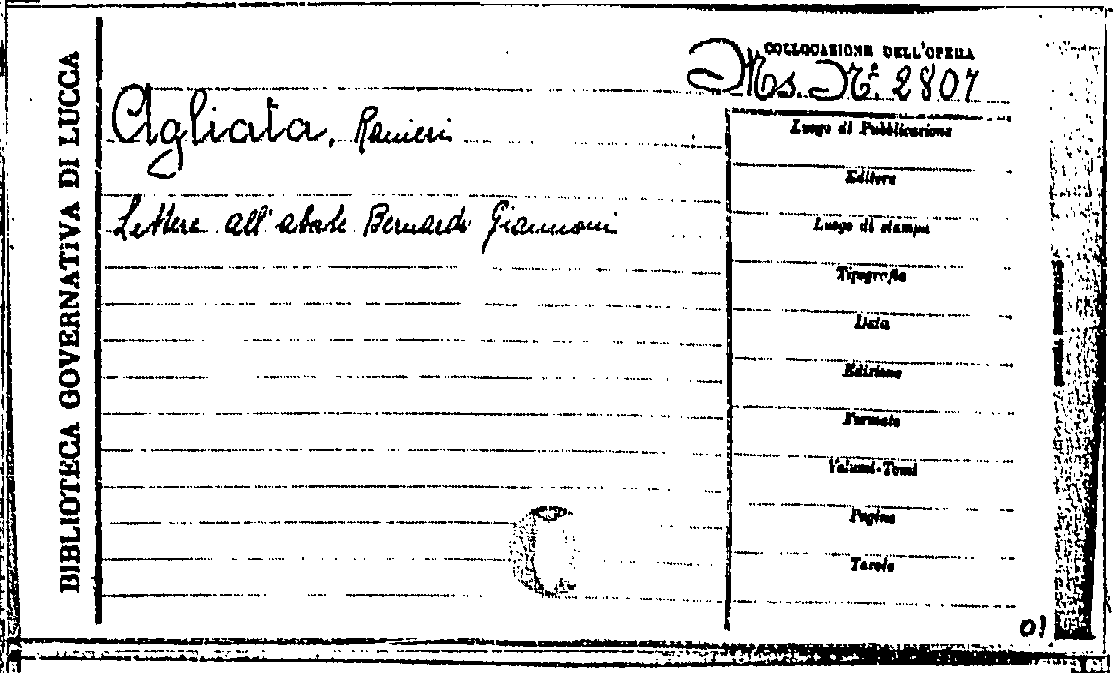 BIBLIOTECA GOVERNATIVA DI LUCCA
COLLOCAZIONE DELL'OPERA
Ms. N.º 2807
Agliata, Ranieri
Lettere all'abate Bernardo Giannoni
Luogo di Pubblicazione
Editore
Luogo di stampa
Tipografia
Data
Edizione
Formato
Volumi-Tomi
Pagine
Tavole
01